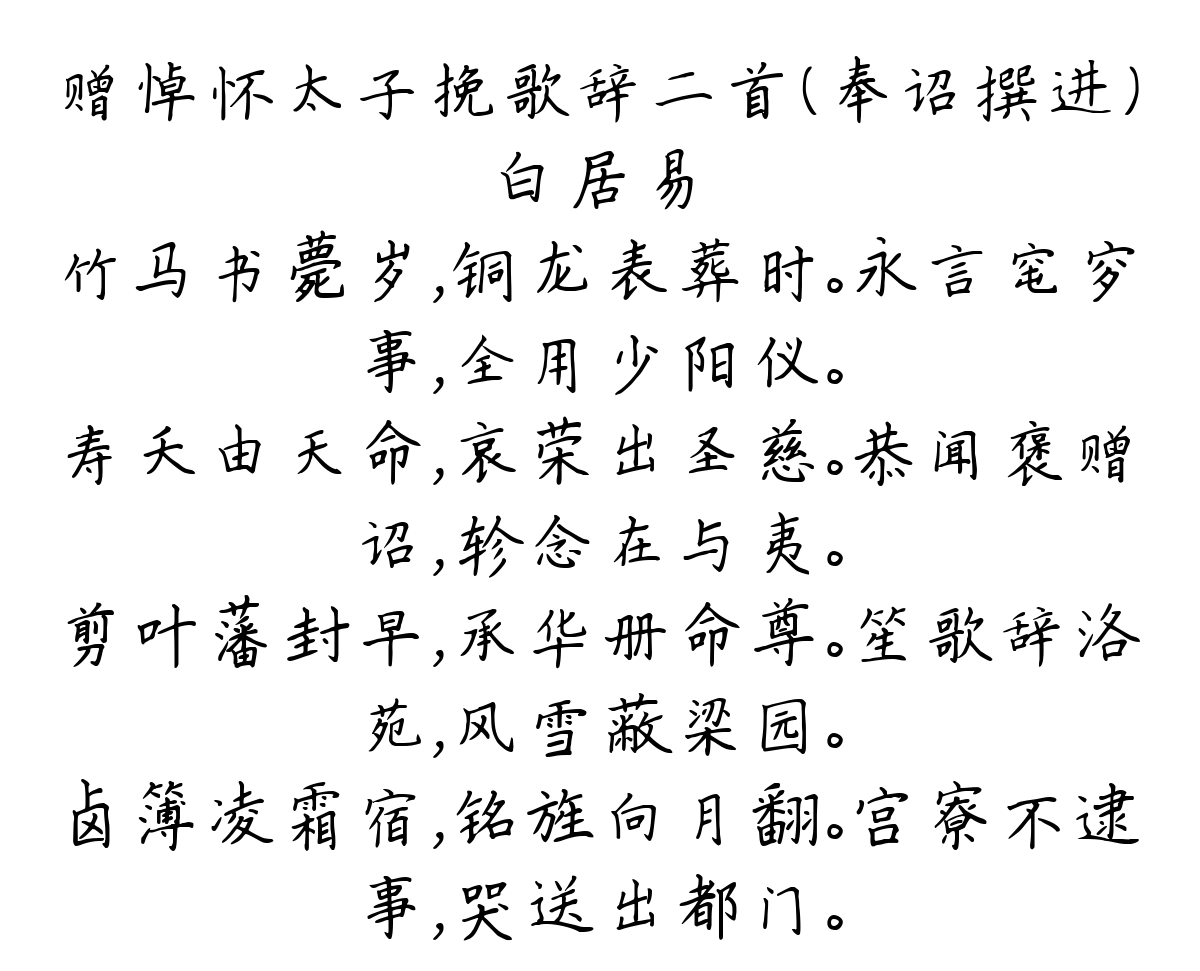 赠悼怀太子挽歌辞二首(奉诏撰进)
白居易
竹马书薨岁,铜龙表葬时。永言窀穸
事,全用少阳仪。
寿夭由天命,哀荣出圣慈。恭闻褒赠
诏,轸念在与夷。
剪叶藩封早,承华册命尊。笙歌辞洛
苑,风雪蔽梁园。
卤簿凌霜宿,铭旌向月翻。宫寮不逮
事,哭送出都门。